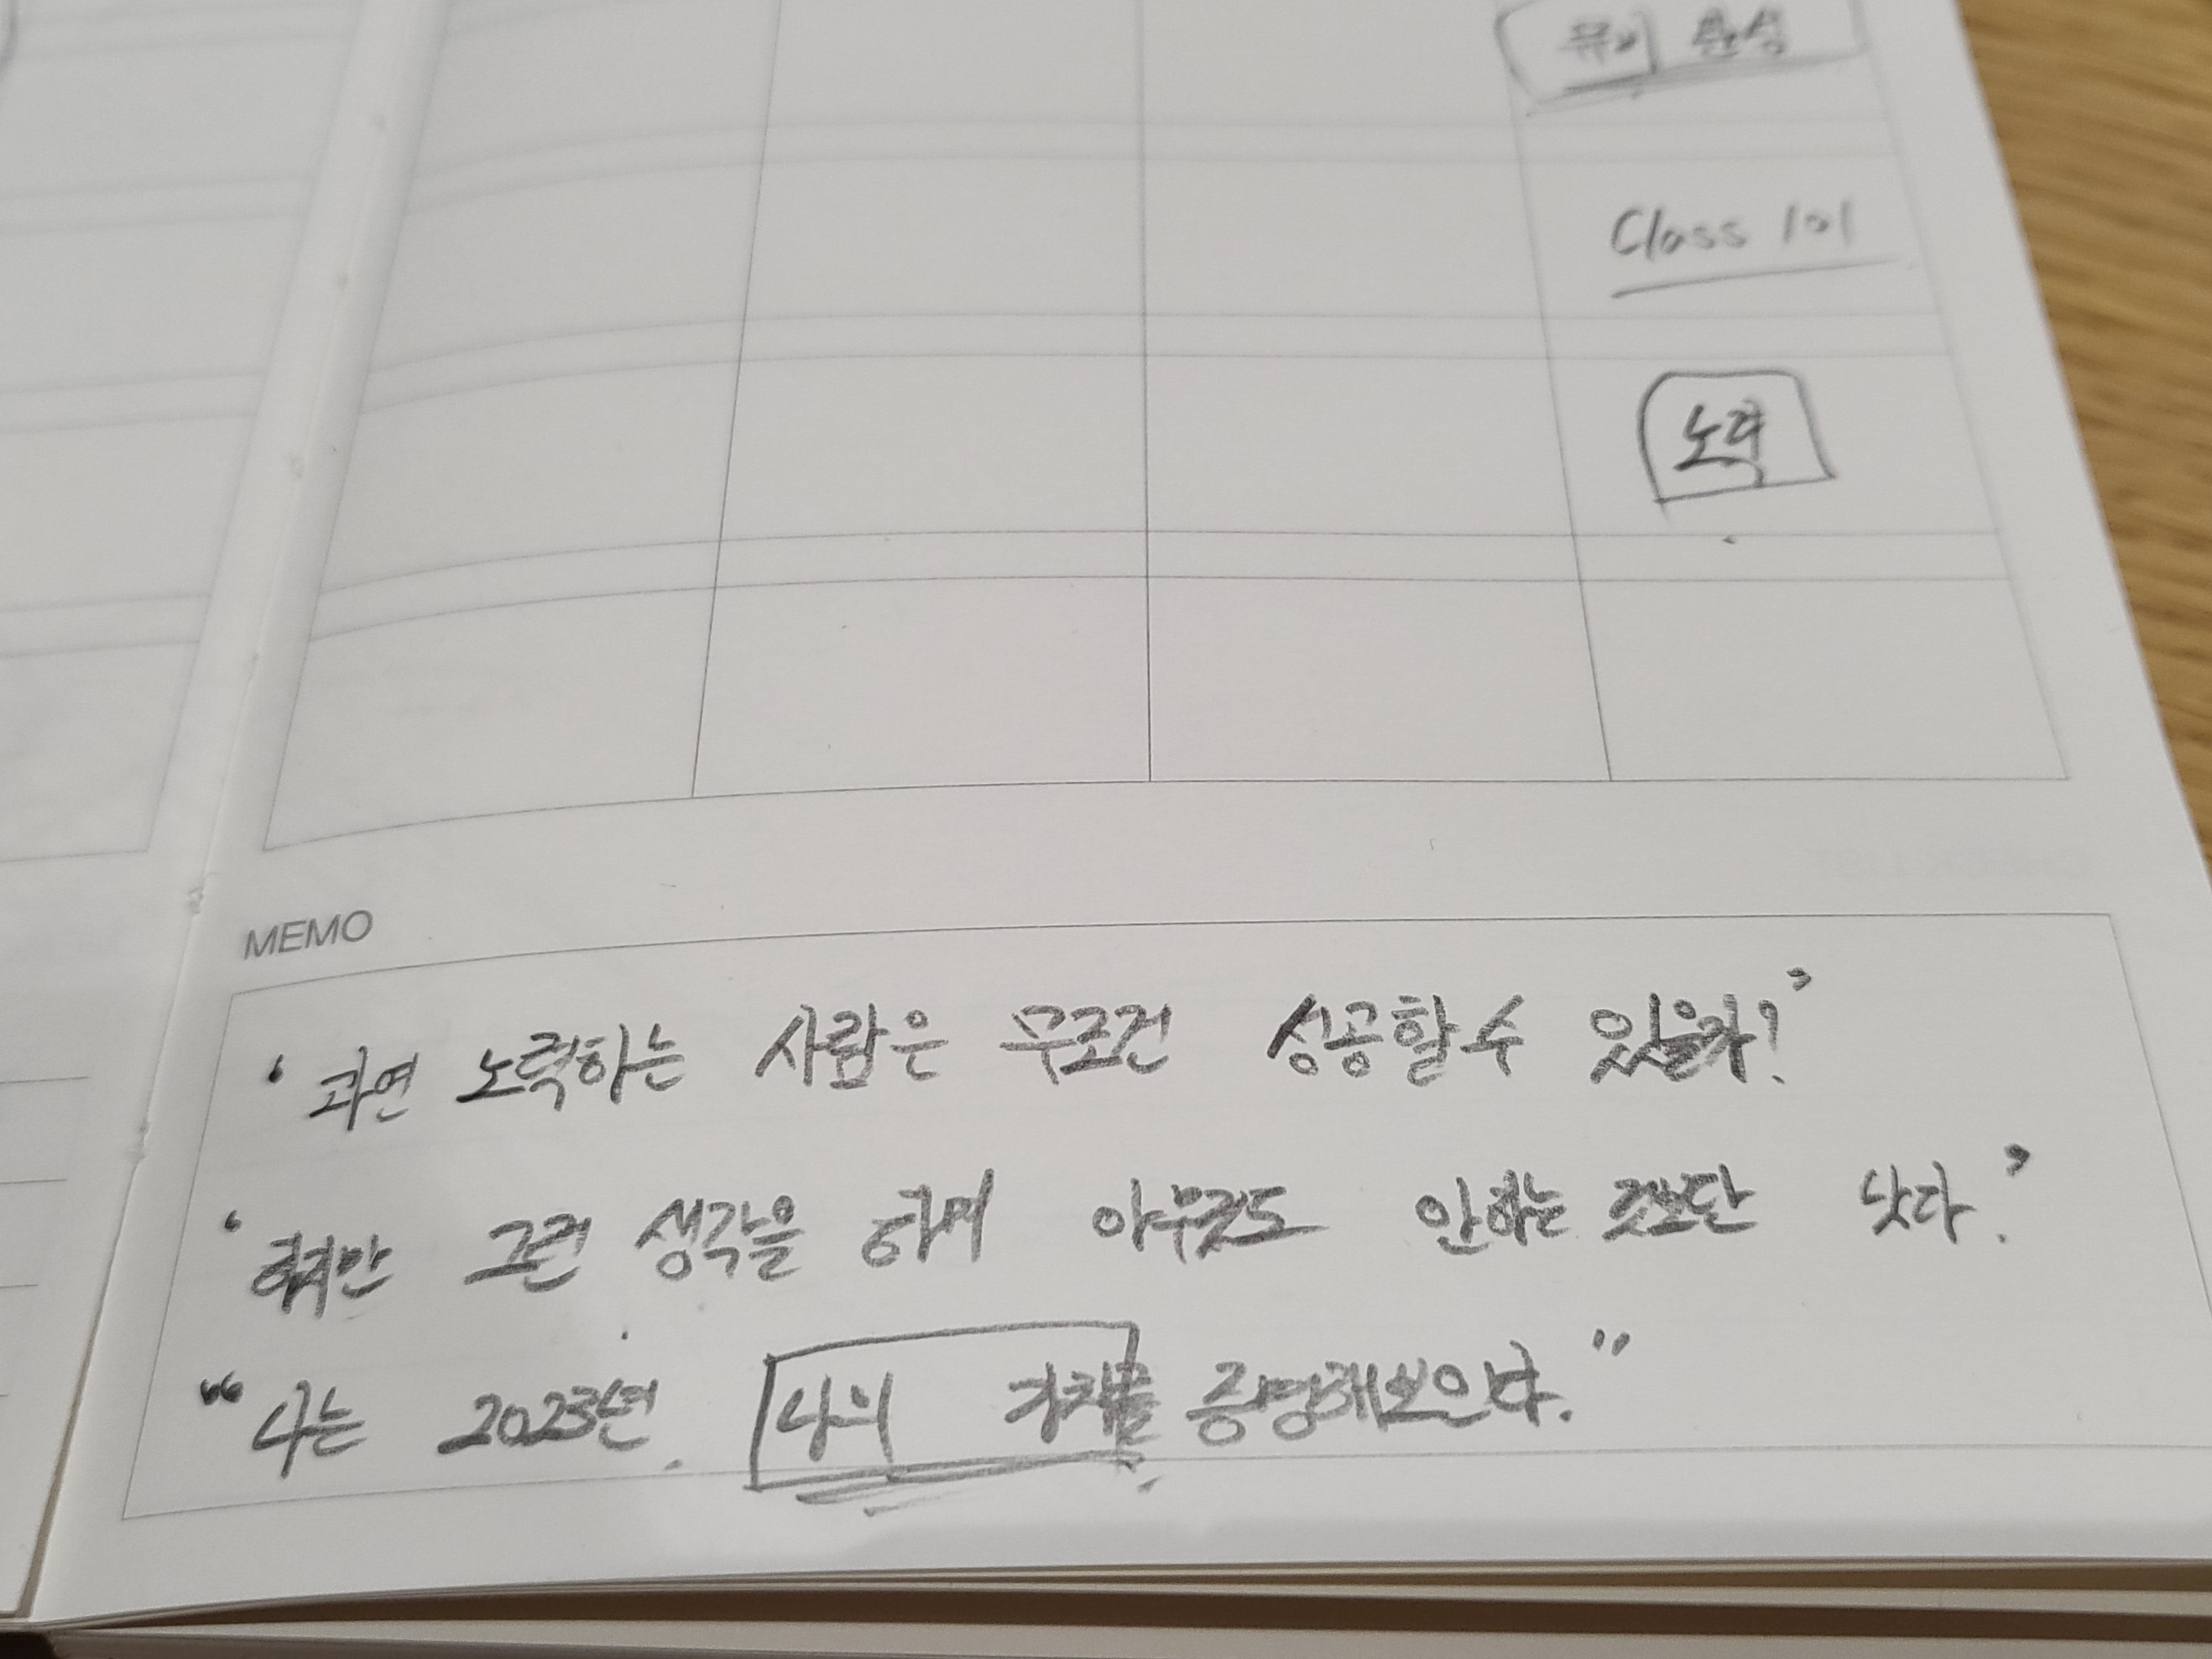 뮤비 분석
Class 101
노력
MEMO
‘과연 노력하는 사람은 무조건 성공할 수 있을까?’
그런 생각을 하며 아무것도 안하는 것보단 낫다.’
“나는 2023년. 나의 가치를 증명해보인다.”